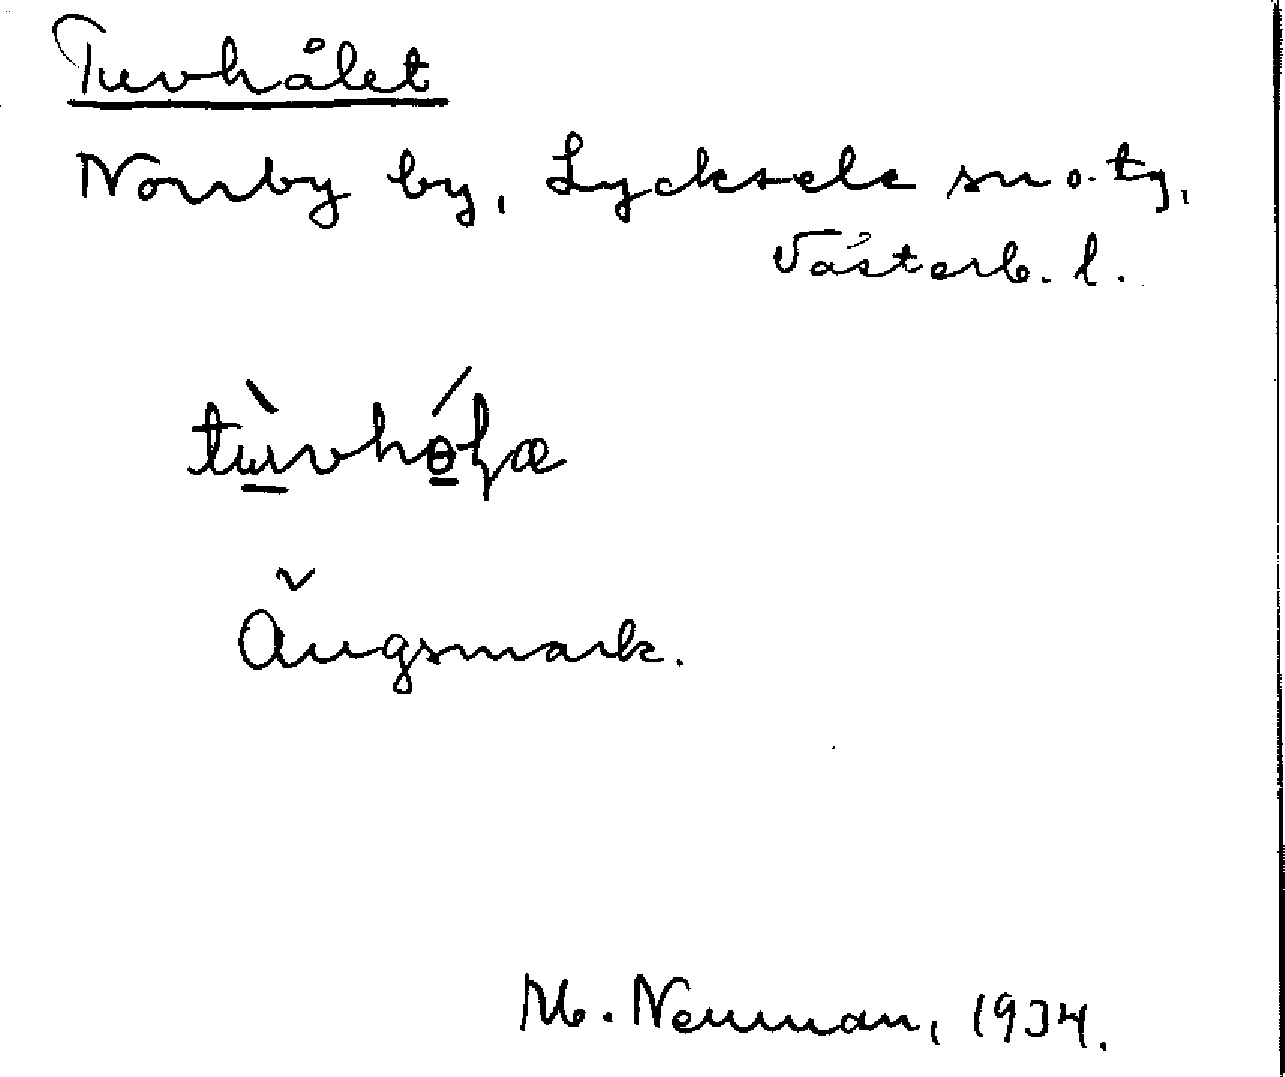 Tuvhålet
Norrby by, Lycksele sn o. tg,
Västerb. l.
Ängsmark.
M. Neuman, 1934.